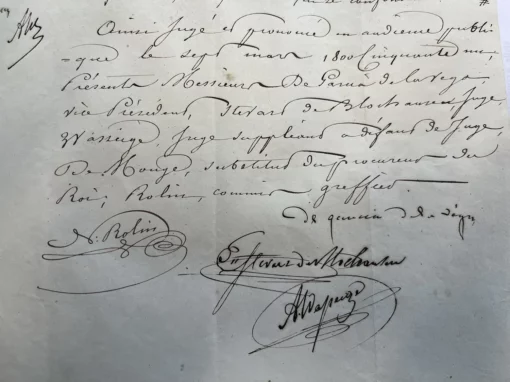 Ainsi jugé et prononcé en audience publi-
-que le sept mars 1800 Cinquante un,
Présents Messieurs De Garcia de la Vega,
vice Président, Stevart de Blochausen, Juge,
Wasseige, Juge suppléant à défaut de Juge,
De Monge, substitut du procureur du
Roi, Rolin, commis greffier.
de garcia de la Vega
N. Rolin
AWasseige